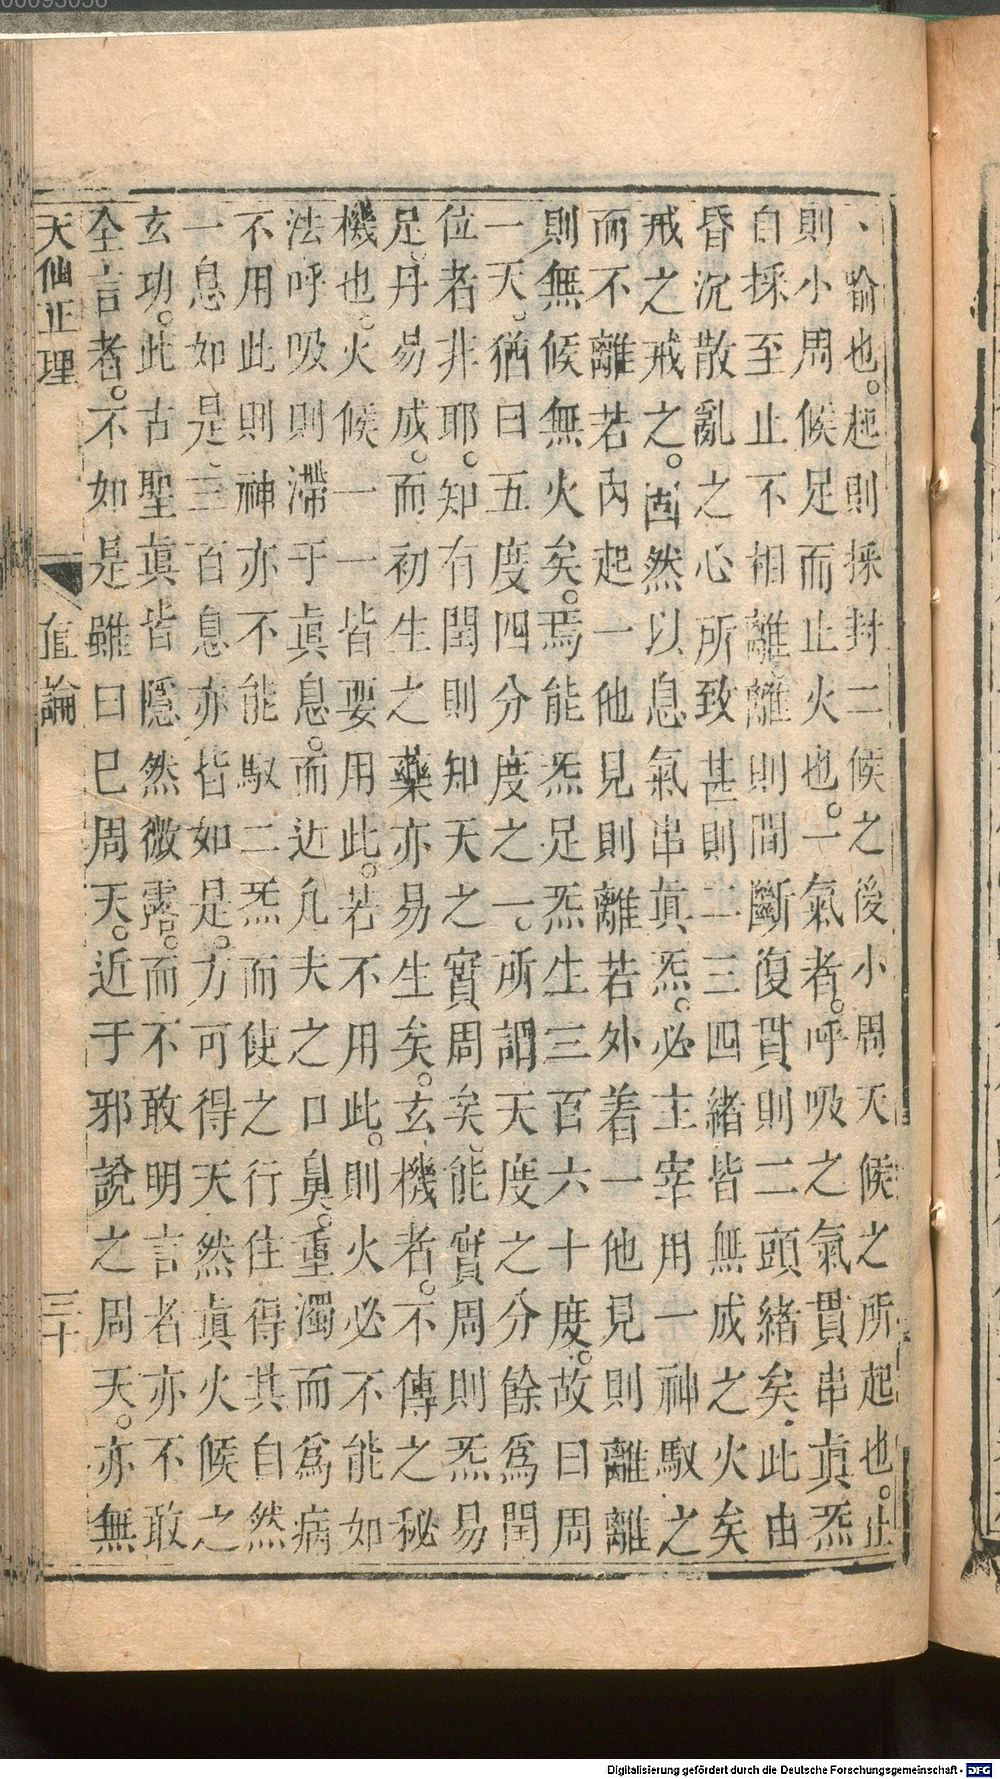 喻也。起則採封二候之後小周天候之所起也。止
則小周候足而止火也。一氣者。呼吸之氣貫串真炁
自採至止不相離離則間斷復貫則二頭緒矣。此由
昏沉散亂之心所致甚則二三四緒皆無成之火矣
戒之戒之。固然以息氣串真炁。必主宰用一神馭之
而不離若內起一他見則離若外着一他見則離離
則無候無火矣。焉能炁足炁生三百六十度。故曰周
一天。猶曰五度四分度之一。所謂天度之分餘爲閏
位者非耶。知有閏則知天之實周矣。能實周則炁易
足。丹易成。而初生之藥亦易生矣。玄機者。不傳之秘
機也。火候一一皆要用此。若不用此。則火必不能如
法呼吸則滯于真息。而近凢夫之口鼻。重濁而爲病
不用此則神亦不能馭二炁而使之行住得其自然
一息如是三百息亦皆如是。方可得天然真火候之
玄功。此古聖真皆隱然微露。而不敢明言者亦不敢
全言者。不如是雖曰巳周天。近于邪說之周天。亦無
天仙正理 直論 三十
00093056
Digitalisierung gefördert durch die Deutsche Forschungsgemeinschaft - DFG